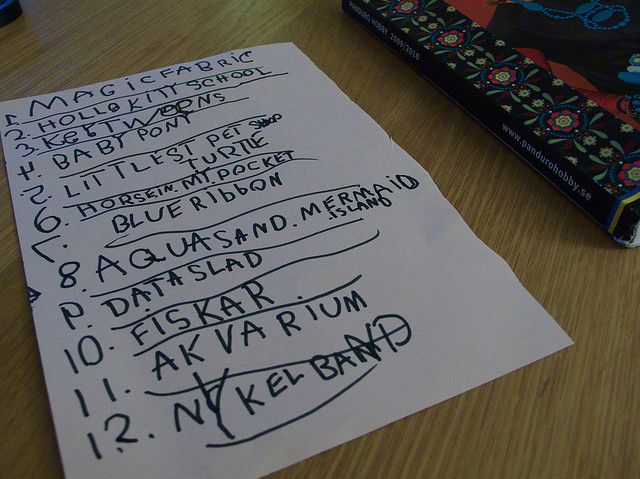 1. MAGIC FABRIC
2. HOLLO KITT SCHOOL
3. KEET WEENS
4. BABY PONY
5. LITTLEST PET SHOP
TURTLE
6. HORSE IN MY POCKET
7. BLUE RIBBON
8. AQUA SAND. MERMAID
ISLAND
9. DATASLAD
10. FISKAR
11. AKVARIUM
12. NYKELBAND
PANDURO HOBBY 2009/2010
www.pandurohobby.se